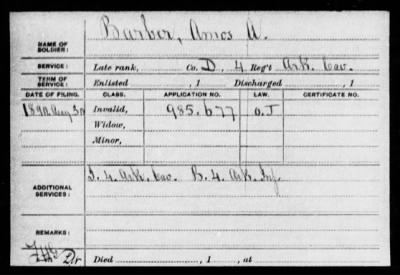 NAME OF SOLDIER: Barber, Amos A.
SERVICE: Late rank, Co. D, 4 Reg't Ark. Cav.
TERM OF SERVICE: Enlisted , 1 Discharged , 1
DATE OF FILING. CLASS. APPLICATION NO. LAW. CERTIFICATE NO.
1890 Aug Invalid, 985.677 O.J
Widow,
Minor,
ADDITIONAL SERVICES: I. 4. Ark. Cav. B. 4. Ark. Inf.
REMARKS:
Died , 1 , at